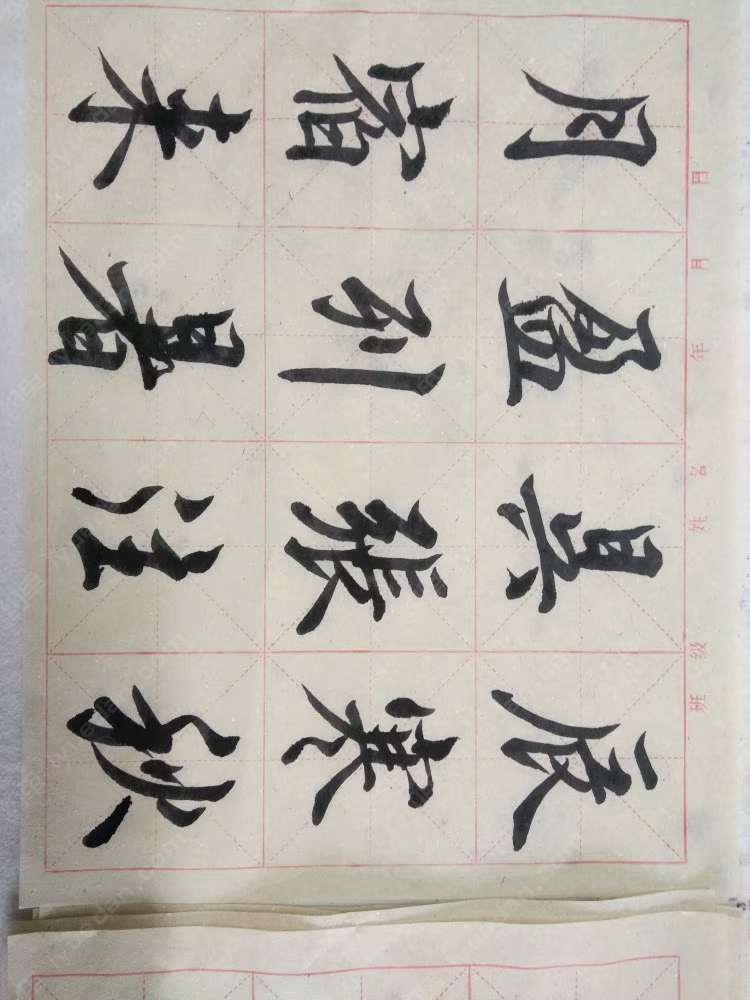 月盈昃辰
宿列張寒
来暑往秋
班级 姓名 年 月 日